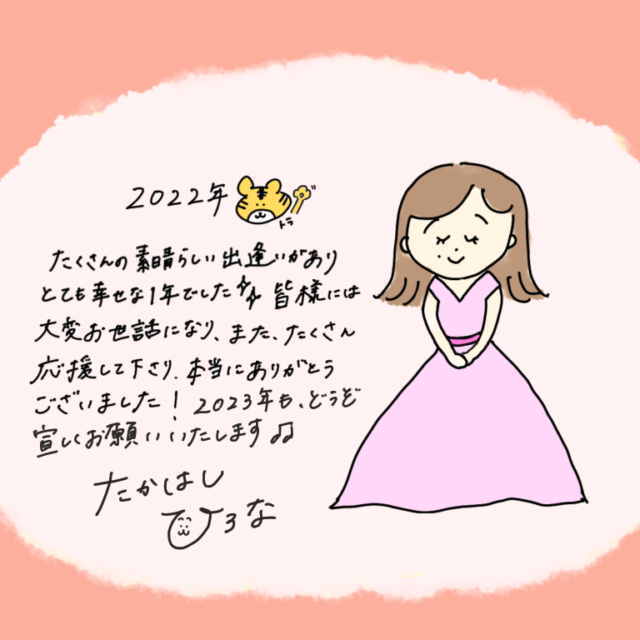 2022年
トラ
たくさんの素晴らしい出逢いがあり
とても幸せな1年でした 皆様には
大変お世話になり、また、たくさん
応援して下さり、本当にありがとう
ございました! 2023年も、どうぞ
宜しくお願いいたします♫
たかはし
ひろな